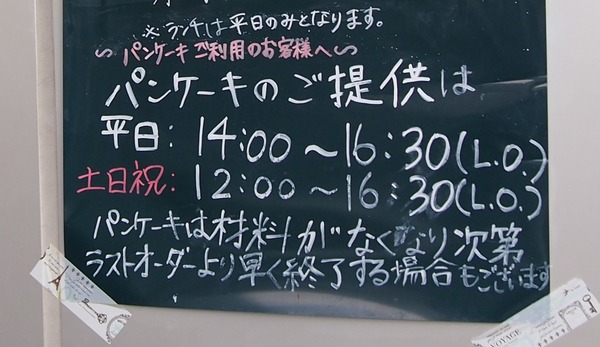 ※ランチは平日のみとなります。
～パンケーキご利用のお客様へ～
パンケーキのご提供は
平日: 14:00～16:30(L.O.)
土日祝: 12:00～16:30(L.O.)
パンケーキは材料がなくなり次第
ラストオーダーより早く終了する場合もございます
VOYAGE